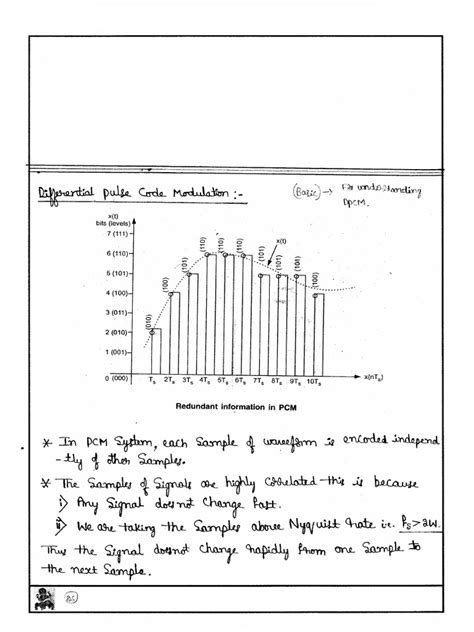 Differential pulse Code Modulation :-
(Basic) → For understanding
DPCM.
x(t)
bits (levels)
7 (111)
6 (110)
5 (101)
4 (100)
3 (011)
2 (010)
1 (001)
0 (000)
(010)
(100)
(101)
(110)
(110)
(110)
(101)
(101)
(101)
(100)
x(t)
Ts 2Ts 3Ts 4Ts 5Ts 6Ts 7Ts 8Ts 9Ts 10Ts
x(nTs)
Redundant information in PCM
* In PCM System, each Sample of waveform is encoded independ
-tly of other Samples.
* The Samples of Signals are highly correlated this is because
i) Any Signal does not Change fast.
ii) We are taking the Samples above Nyquist rate i.e. fs>2W.
Thus the Signal doesnot Change rapidly from one Sample to
the next Sample.